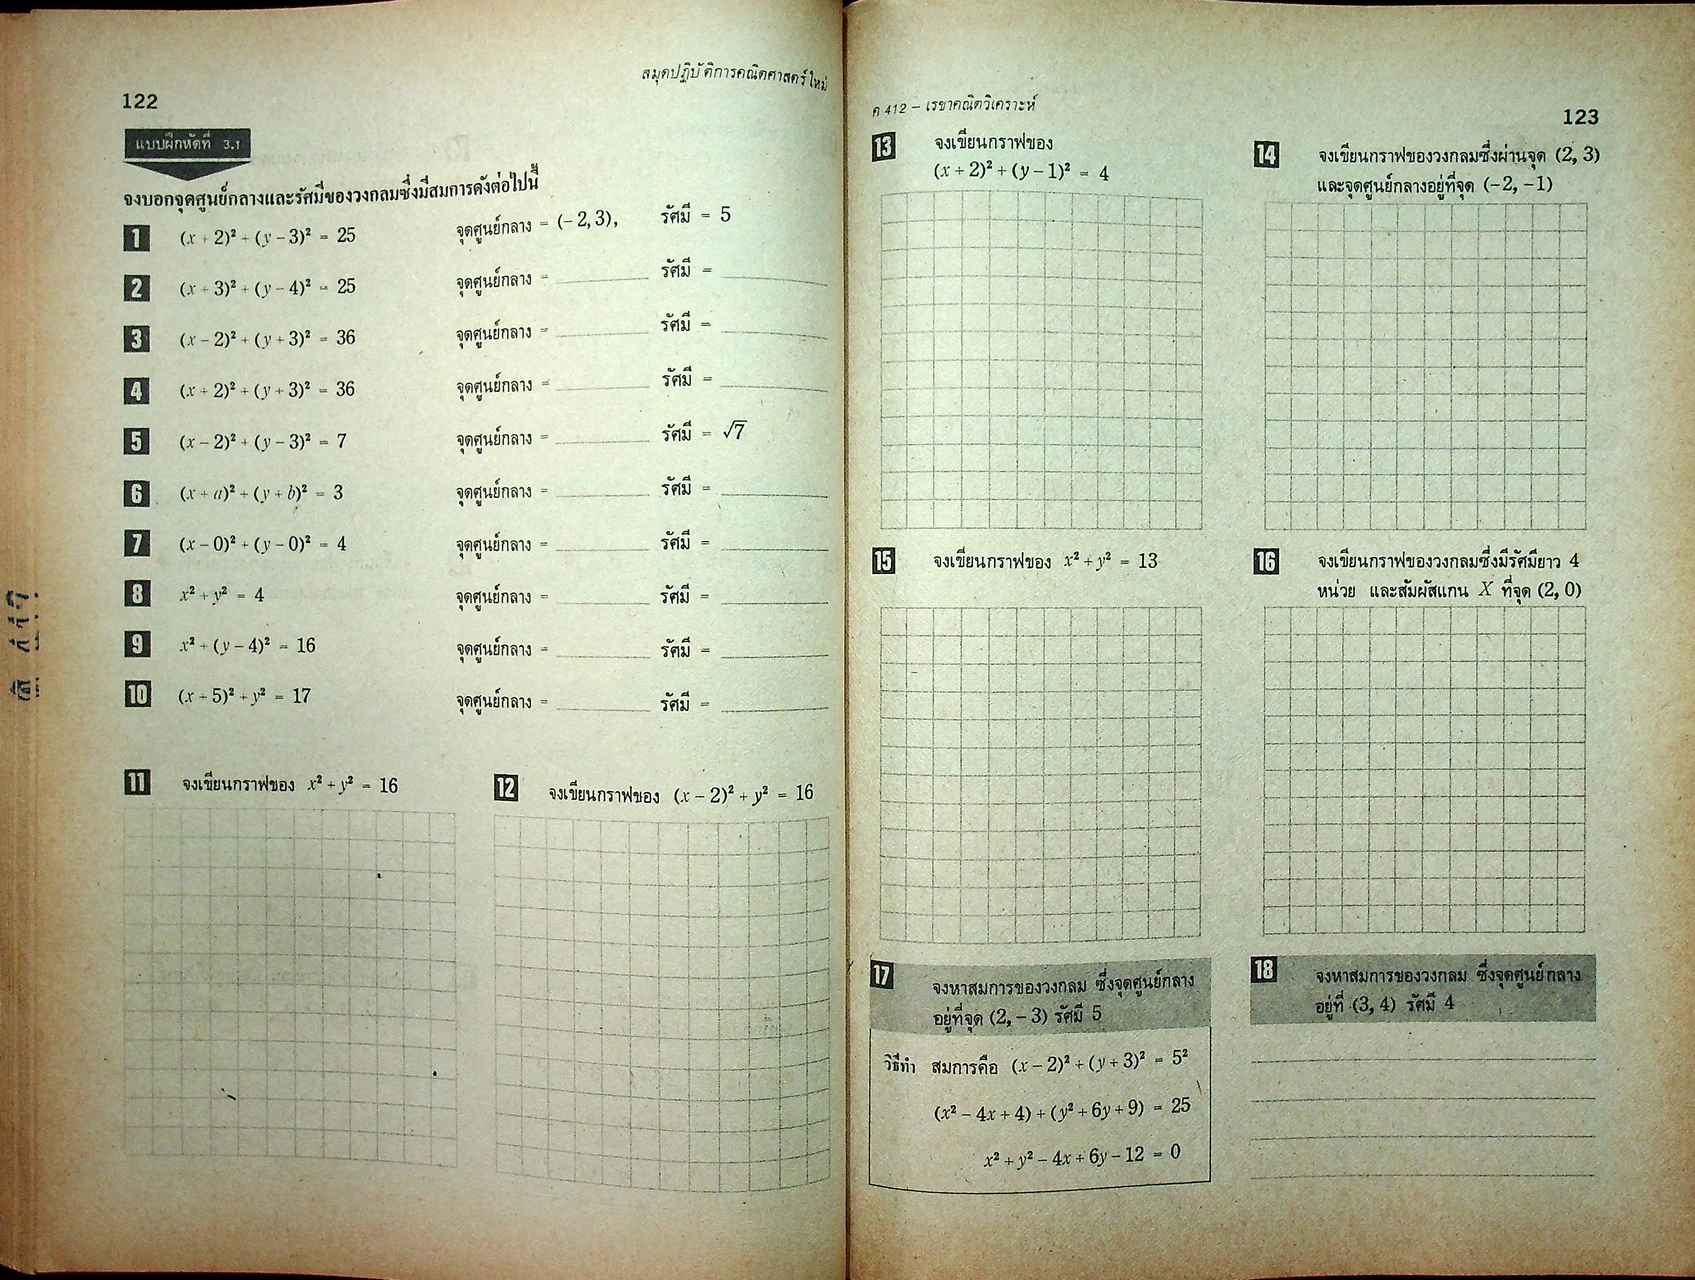 122
สมุดปฏิบัติการคณิตศาสตร์ใหม่
แบบฝึกหัดที่ 3.1
จงบอกจุดศูนย์กลางและรัศมีของวงกลมซึ่งมีสมการดังต่อไปนี้
1 (x + 2)² + (y – 3)² = 25 จุดศูนย์กลาง = (– 2, 3), รัศมี = 5
2 (x + 3)² + (y – 4)² = 25 จุดศูนย์กลาง = รัศมี =
3 (x – 2)² + (y + 3)² = 36 จุดศูนย์กลาง = รัศมี =
4 (x + 2)² + (y + 3)² = 36 จุดศูนย์กลาง = รัศมี =
5 (x – 2)² + (y – 3)² = 7 จุดศูนย์กลาง = รัศมี = √7
6 (x + a)² + (y + b)² = 3 จุดศูนย์กลาง = รัศมี =
7 (x – 0)² + (y – 0)² = 4 จุดศูนย์กลาง = รัศมี =
8 x² + y² = 4 จุดศูนย์กลาง = รัศมี =
9 x² + (y – 4)² = 16 จุดศูนย์กลาง = รัศมี =
10 (x + 5)² + y² = 17 จุดศูนย์กลาง = รัศมี =
11 จงเขียนกราฟของ x² + y² = 16
12 จงเขียนกราฟของ (x – 2)² + y² = 16
ค 412 – เรขาคณิตวิเคราะห์
123
13 จงเขียนกราฟของ
(x + 2)² + (y – 1)² = 4
14 จงเขียนกราฟของวงกลมซึ่งผ่านจุด (2, 3)
และจุดศูนย์กลางอยู่ที่จุด (–2, –1)
15 จงเขียนกราฟของ x² + y² = 13
16 จงเขียนกราฟของวงกลมซึ่งมีรัศมียาว 4
หน่วย และสัมผัสแกน X ที่จุด (2, 0)
17 จงหาสมการของวงกลม ซึ่งจุดศูนย์กลาง
อยู่ที่จุด (2, – 3) รัศมี 5
วิธีทำ สมการคือ (x – 2)² + (y + 3)² = 5²
(x² – 4x + 4) + (y² + 6y + 9) = 25
x² + y² – 4x + 6y – 12 = 0
18 จงหาสมการของวงกลม ซึ่งจุดศูนย์กลาง
อยู่ที่ (3, 4) รัศมี 4